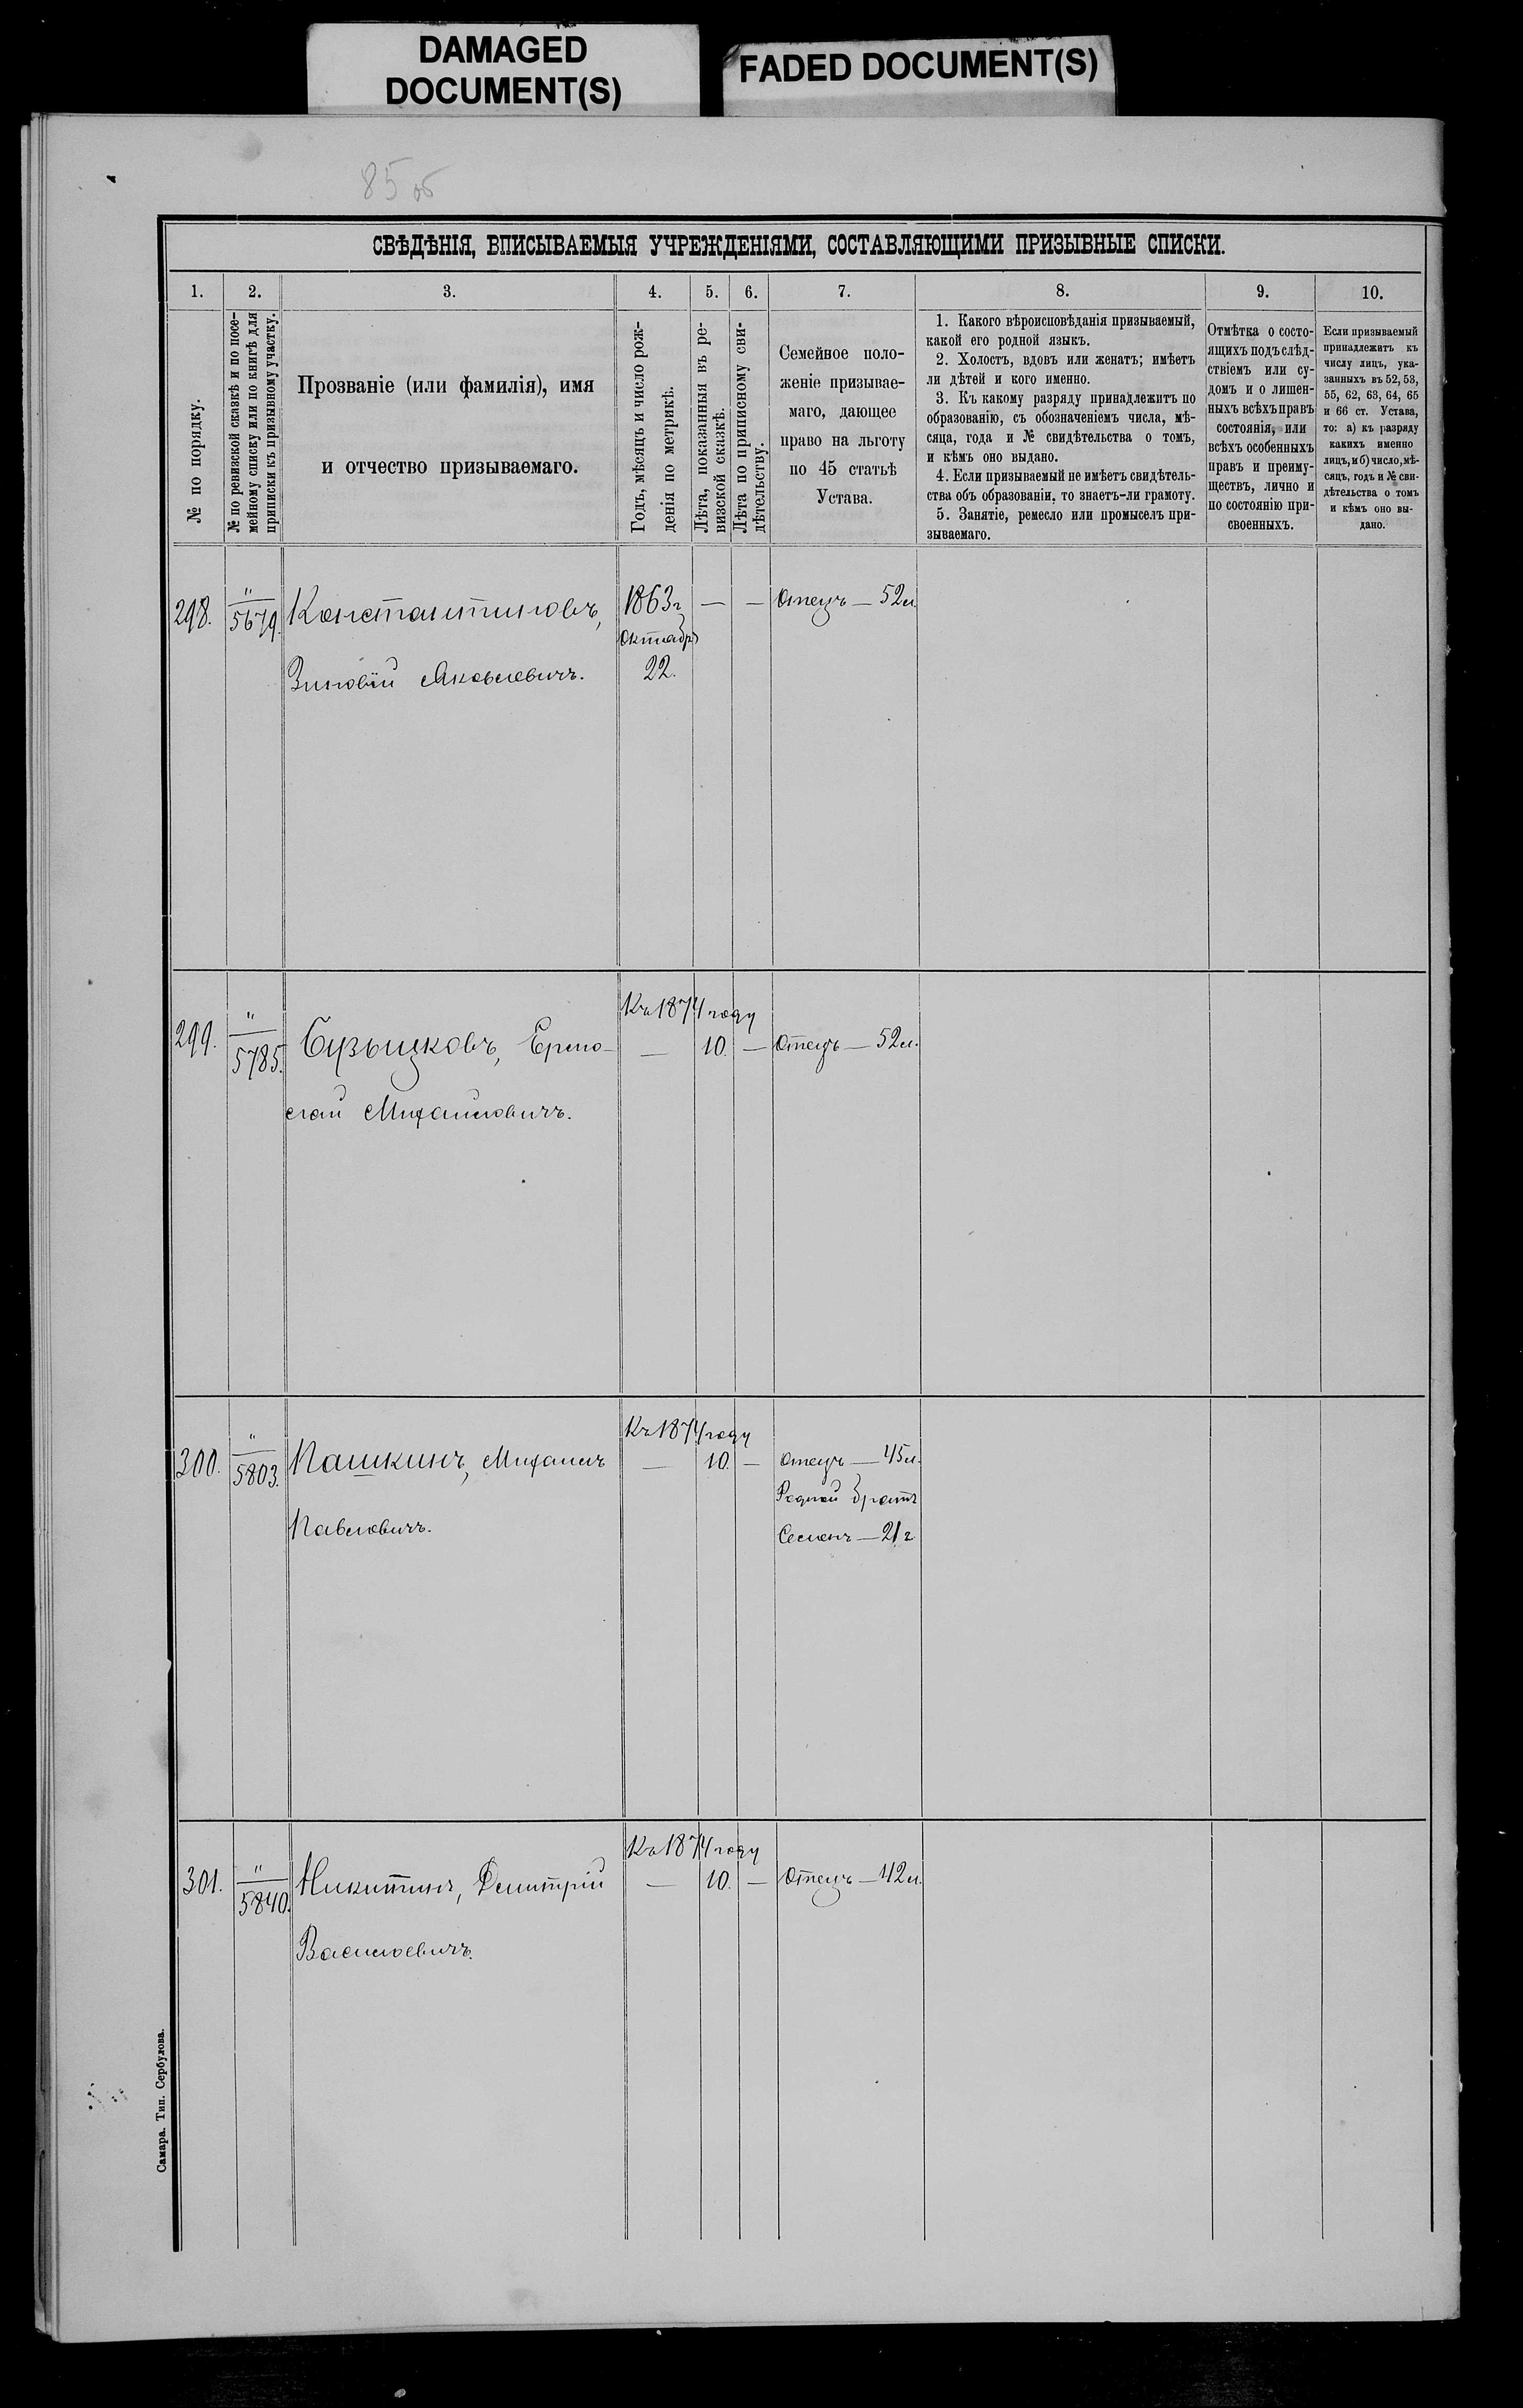 DAMAGED
DOCUMENT(S)
FADED DOCUMENT(S)
85 об
СВѢДѢНІЯ, ВПИСЫВАЕМЫЯ УЧРЕЖДЕНІЯМИ, СОСТАВЛЯЮЩИМИ ПРИЗЫВНЫЕ СПИСКИ.
1. 2. 3. 4. 5. 6. 7. 8. 9. 10.
№ по порядку.
№ по ревизской сказкѣ и по посе-
мейному списку или по книгѣ для
приписки къ призывному участку.
Прозваніе (или фамилія), имя
и отчество призываемаго.
Годъ, мѣсяцъ и число рож-
денія по метрикѣ.
Лѣта, показанныя въ ре-
визской сказкѣ.
Лѣта по приписному сви-
дѣтельству.
Семейное поло-
женіе призывае-
маго, дающее
право на льготу
по 45 статьѣ
Устава.
1. Какого вѣроисповѣданія призываемый,
какой его родной языкъ.
2. Холостъ, вдовъ или женатъ; имѣетъ
ли дѣтей и кого именно.
3. Къ какому разряду принадлежитъ по
образованію, съ обозначеніемъ числа, мѣ-
сяца, года и № свидѣтельства о томъ,
и кѣмъ оно выдано.
4. Если призываемый не имѣетъ свидѣтель-
ства объ образованіи, то знаетъ-ли грамоту.
5. Занятіе, ремесло или промыселъ при-
зываемаго.
Отмѣтка о состо-
ящихъ подъ слѣд-
ствіемъ или су-
домъ и о лишен-
ныхъ всѣхъ правъ
состоянія, или
всѣхъ особенныхъ
правъ и преиму-
ществъ, лично и
по состоянію при-
своенныхъ.
Если призываемый
принадлежитъ къ
числу лицъ, ука-
занныхъ въ 52, 53,
55, 62, 63, 64, 65
и 66 ст. Устава,
то: а) къ разряду
какихъ именно
лицъ, и б) число, мѣ-
сяцъ, годъ и № сви-
дѣтельства о томъ
и кѣмъ оно вы-
дано.
298. " 5679. Константиновъ, 1863 г. — — Отецъ — 52 л.
Октабръ
Зиновій Яковлевичъ. 22.
Къ 1874 году
299. " 5785. Ермо- — 10. — Отецъ — 52 л.
лай Михайловичъ.
Къ 1874 году
300. " 5803. Пашкинъ, Михаилъ — 10. — Отецъ — 45 л.
Родной братъ
Павловичъ. Семенъ — 21 г.
Къ 1874 году
301. " 5840. Никитинъ, Димитрій — 10. — Отецъ — 42 л.
Васильевичъ.
Самара. Тип. Сербулова.